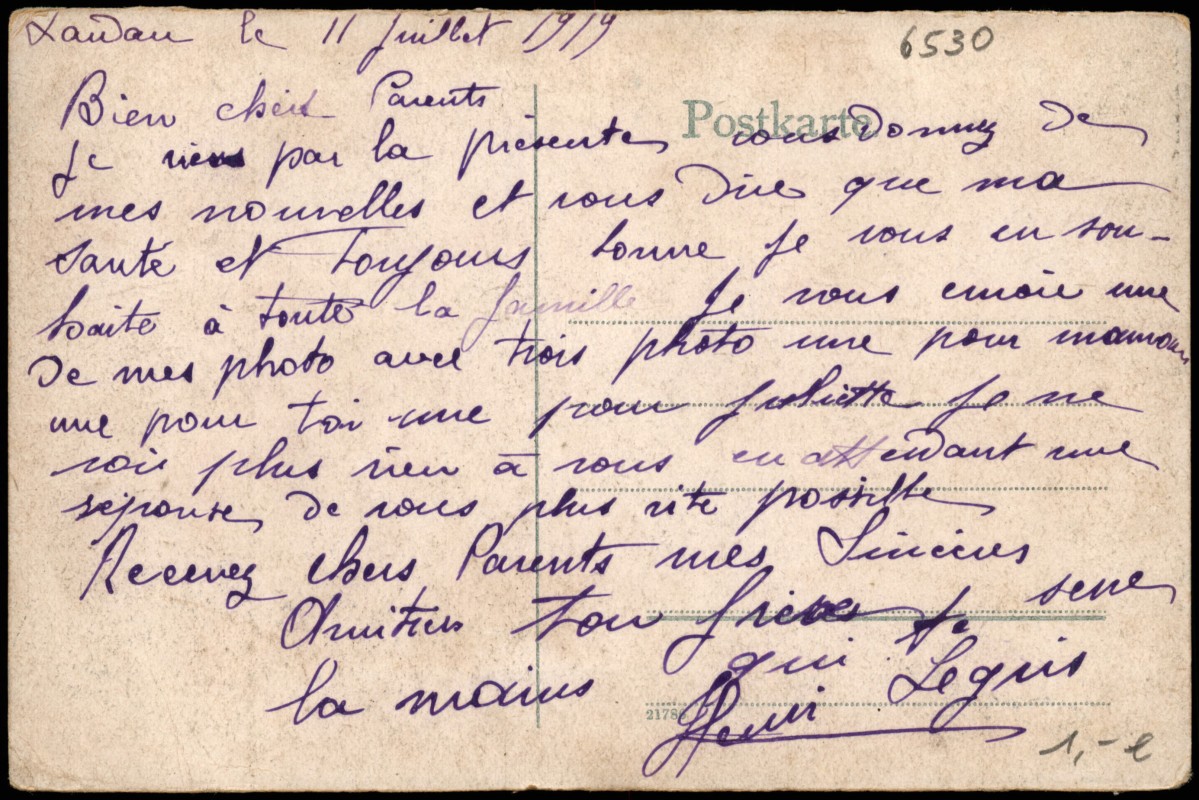 Landau le 11 Juillet 1919
6530
Postkarte
Bien chers Parents
Je viens par la présente vous Donnez De
mes nouvelles et vous Dire que ma
santé et Toujours bonne Je vous en sou-
haite à toute la famille Je vous envoie une
De mes photo avec trois photo une pour maman
une pour toi une pour Juliette Je ne
voir plus rien à vous en attendant une
réponse De vous plus vite possible
Recevez chers Parents mes Sincères
Amitiés ton frère
qui te serre
la mains
Henri Leguis
2178
1,- e